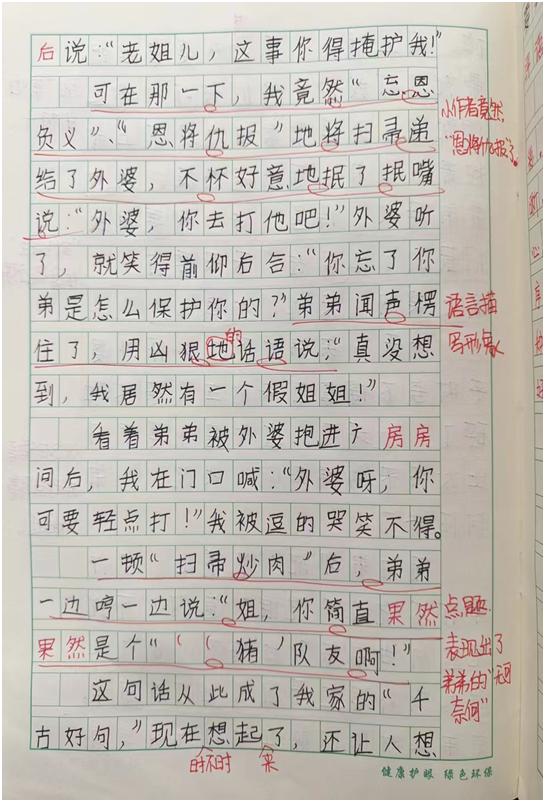 后说：“老姐儿，这事你得掩护我！”
可在那一下，我竟然“忘恩
负义”、“恩将仇报”地将扫帚递
给了外婆，不怀好意地抿了抿嘴
说：“外婆，你去打他吧！”外婆听
了，就笑得前仰后合：“你忘了你
弟是怎么保护你的？”弟弟闻声愣
住了，用凶狠地话语说：“真没想
到，我居然有一个假姐姐！”
看着弟弟被外婆抱进了房房
间后，我在门口喊：“外婆呀，你
可要轻点打！”我被逗的哭笑不得。
一顿“扫帚炒肉”后，弟弟
一边哼一边说：“姐，你简直果然
果然是个“‘猪’队友啊！”
这句话从此成了我家的“千
古好句，”现在想起了，还让人想
的
时不时
来
小作者竟然
“恩将仇报”了。
语言描
写形象
点题.
表现出了
弟弟的“无可
奈何”
健康护眼 绿色环保